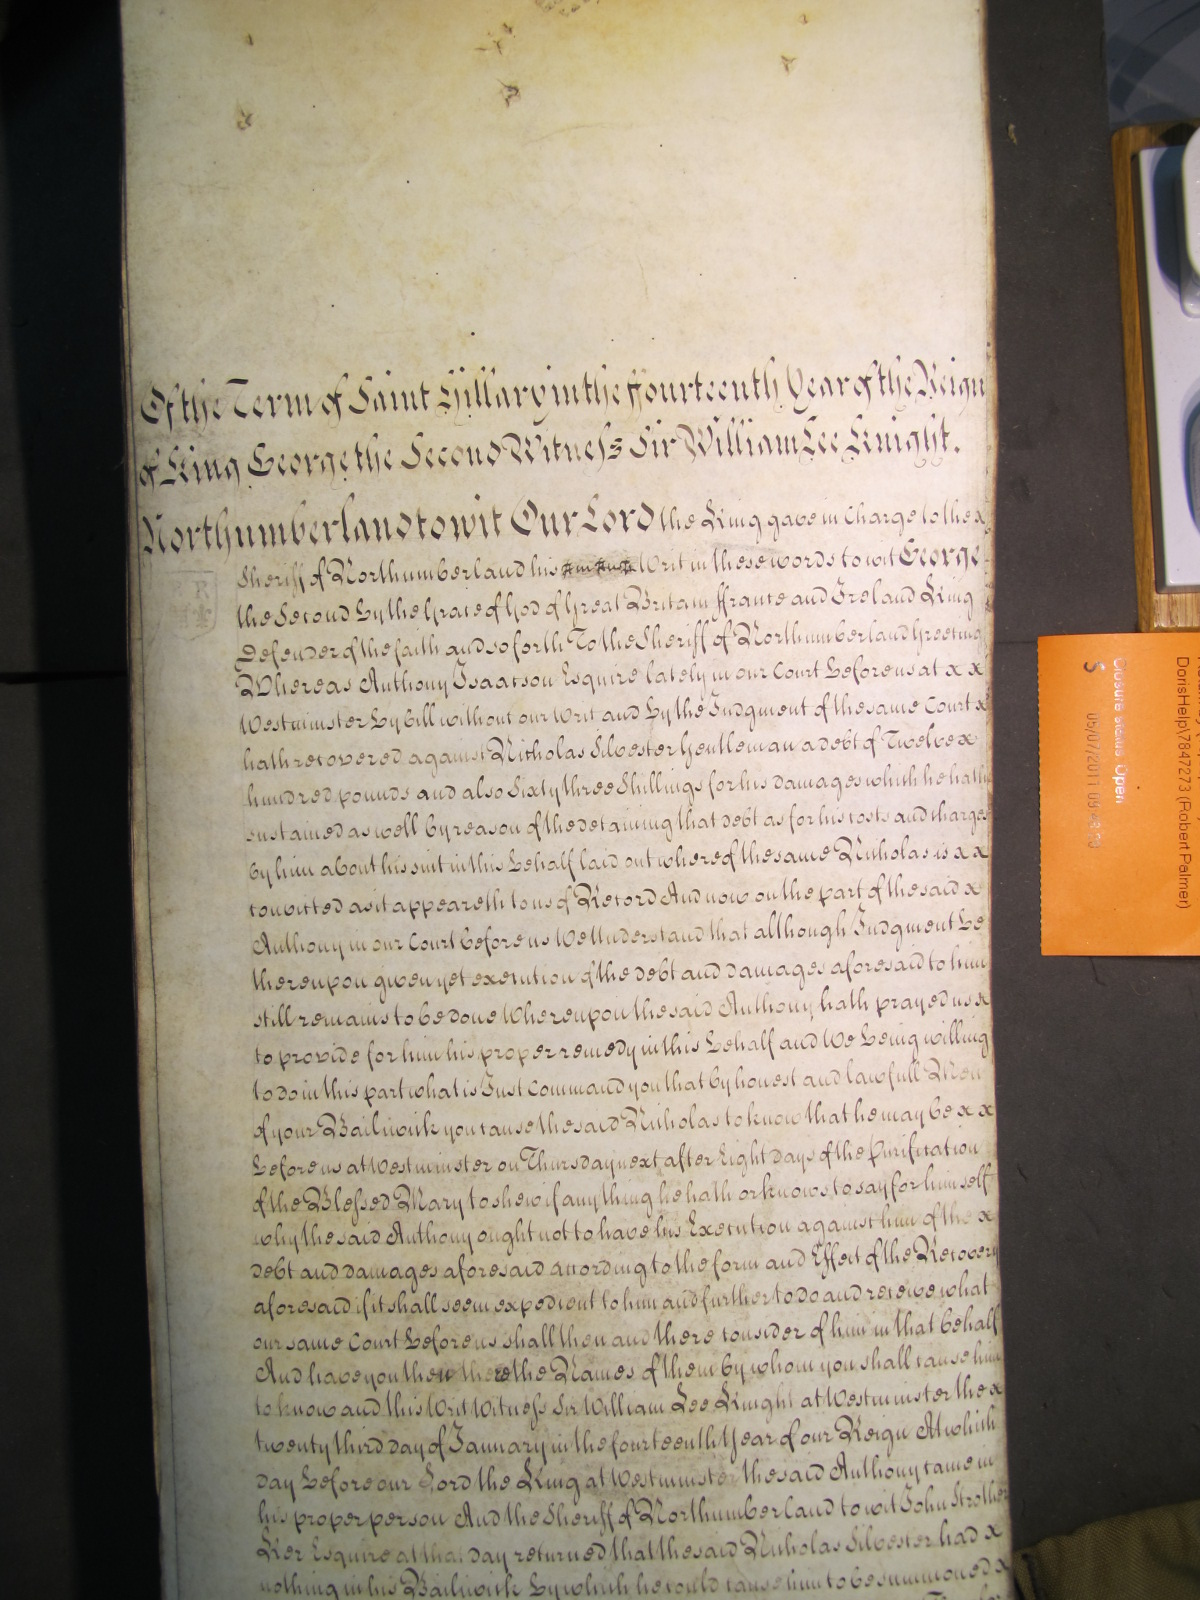 Of the Term of Saint Hillary in the ffourteenth Year of the Reign
of King George the Second Witness Sir William Lee Knight.
Northumberland to wit Our Lord the King gave in Charge to the x
Sheriff of Northumberland his Writ in these words to wit George
the Second by the Grace of God of Great Britain ffrance and Ireland King
Defender of the faith and so forth To the Sheriff of Northumberland Greeting
Whereas Anthony Isaacson Esquire lately in our Court before us at x x
Westminster by bill without our Writ and by the Judgment of the same Court x
hath recovered against Nicholas Silvester Gentleman a debt of Twelve x
hundred pounds and also Sixty three Shillings for his damages which he hath
sustained as well by reason of the detaining that debt as for his costs and charges
by him about his suit in this behalf laid out whereof the same Nicholas is x x
convicted as it appeareth to us of Record And now on the part of the said x
Anthony in our Court before us We Understand that although Judgment be
thereupon given yet execution of the debt and damages aforesaid to him
still remains to be done Whereupon the said Anthony hath prayed us x
to provide for him his proper remedy in this behalf and We being willing
to do in this part what is Just Command you that by honest and lawfull Men
of your Bailiwick you cause the said Nicholas to know that he may be x x
before us at Westminster on Thursday next after Eight days of the Purification
of the Blessed Mary to shew if any thing he hath or knows to say for himself
why the said Anthony ought not to have his Execution against him of the x
debt and damages aforesaid according to the form and Effect of the Recovery
aforesaid if it shall seem expedient to him and further to do and receive what
our same Court before us shall then and there consider of him in that behalf
And have you then there the Names of them by whom you shall cause him
to know and this Writ Witness Sir William Lee Knight at Westminster the x
twenty third day of January in the fourteenth Year of our Reign At which
day before our Lord the King at Westminster the said Anthony came in
his proper person And the Sheriff of Northumberland to wit John Strother
Ker Esquire at that day returned that the said Nicholas Silvester had x
nothing in his Bailiwick by which he could cause him to be summoned x
Closure status Open
S
05/07/2011 09:
DorisHelp\7847273 (Robert Palmer)